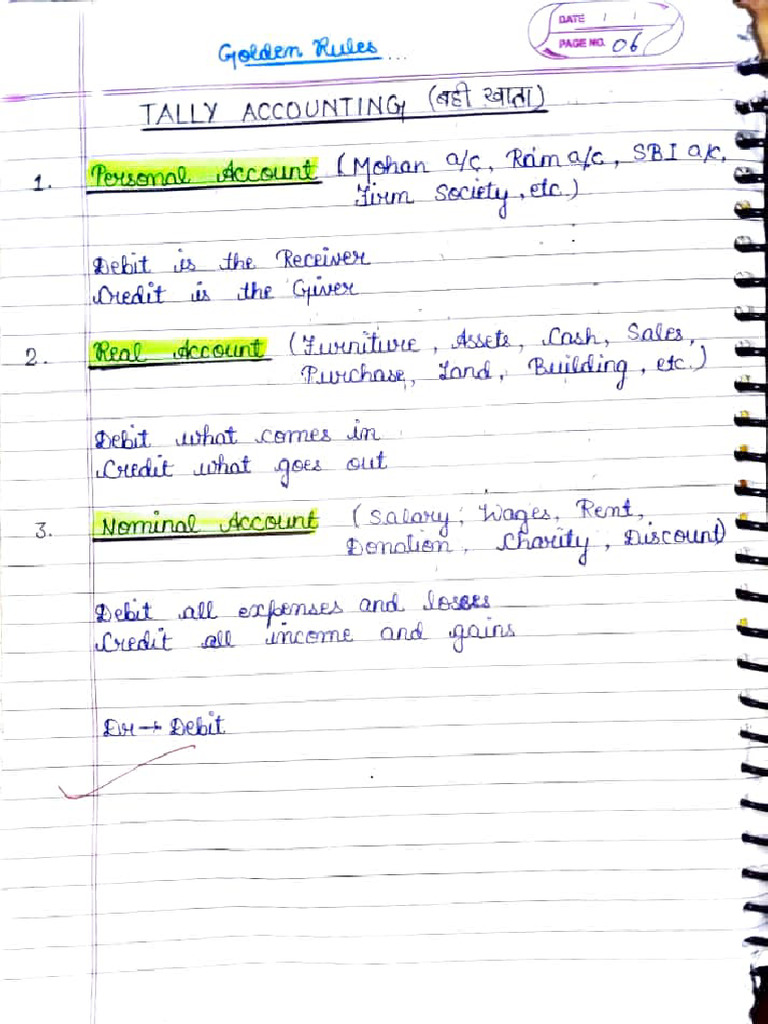 DATE / /
PAGE NO. 06
Golden Rules ...
TALLY ACCOUNTING (बही खाता)
1. Personal Account (Mohan a/c, Ram a/c, SBI a/c,
Firm Society, etc.)
Debit is the Receiver
Credit is the Giver
2. Real Account (Furniture, Assets, Cash, Sales,
Purchase, Land, Building, etc.)
Debit what comes in
Credit what goes out
3. Nominal Account (Salary, Wages, Rent,
Donation, Charity, Discount)
Debit all expenses and losses
Credit all income and gains
Dr → Debit